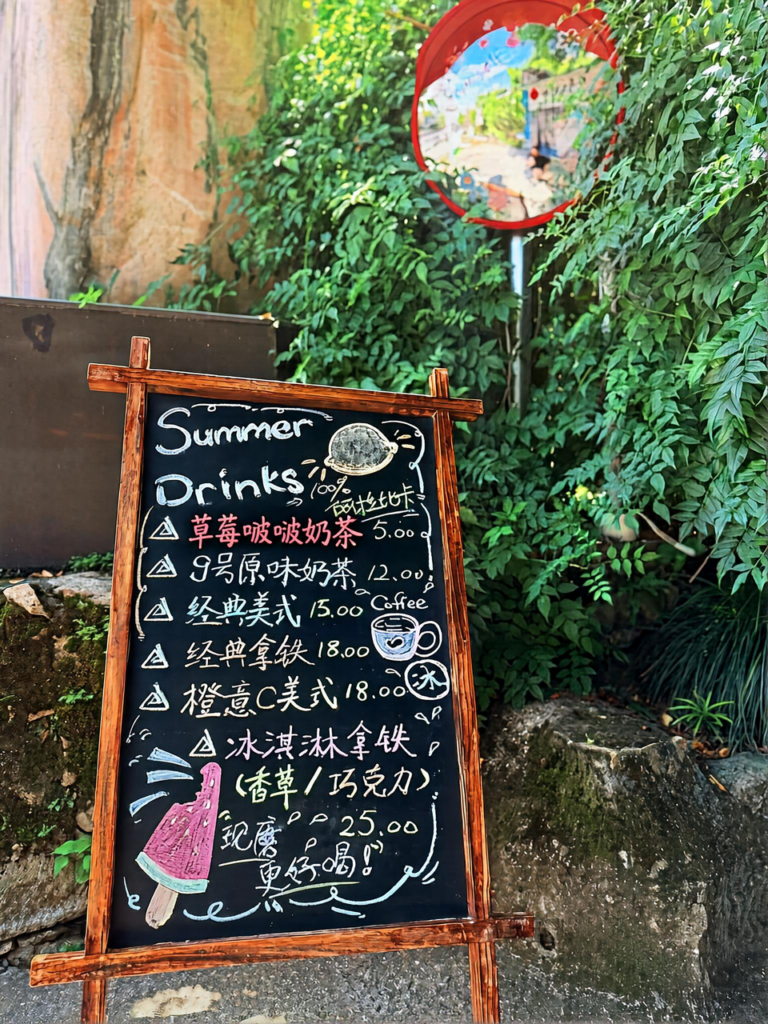 Summer
Drinks
100%
阿拉比卡
草莓啵啵奶茶 5.00
9号原味奶茶 12.00
经典美式 15.00
Coffee
经典拿铁 18.00
冰
橙意C美式 18.00
冰淇淋拿铁
(香草/巧克力)
25.00
现磨
更好喝!